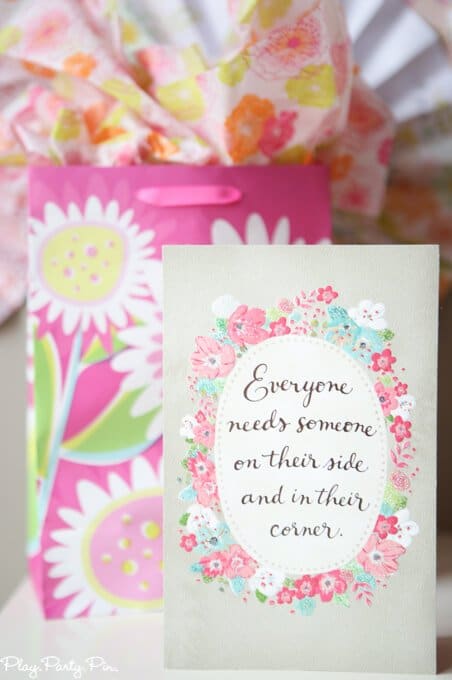 Everyone
needs someone
on their side
and in their
corner.
Play. Party. Pin.